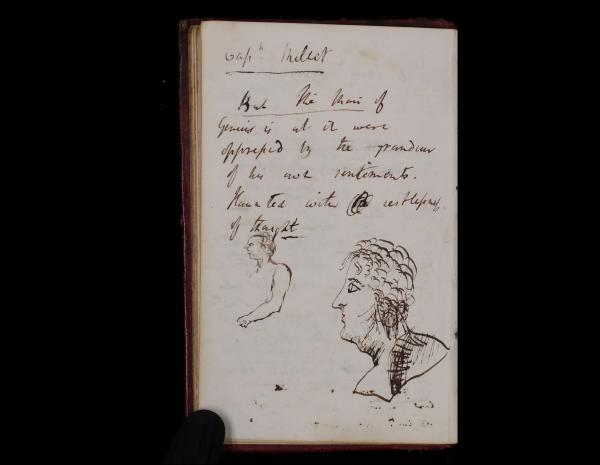 But the Man of
Genius is as it were
oppressed by the grandeur
of his own sentiments.
Haunted with restlessness
of thought